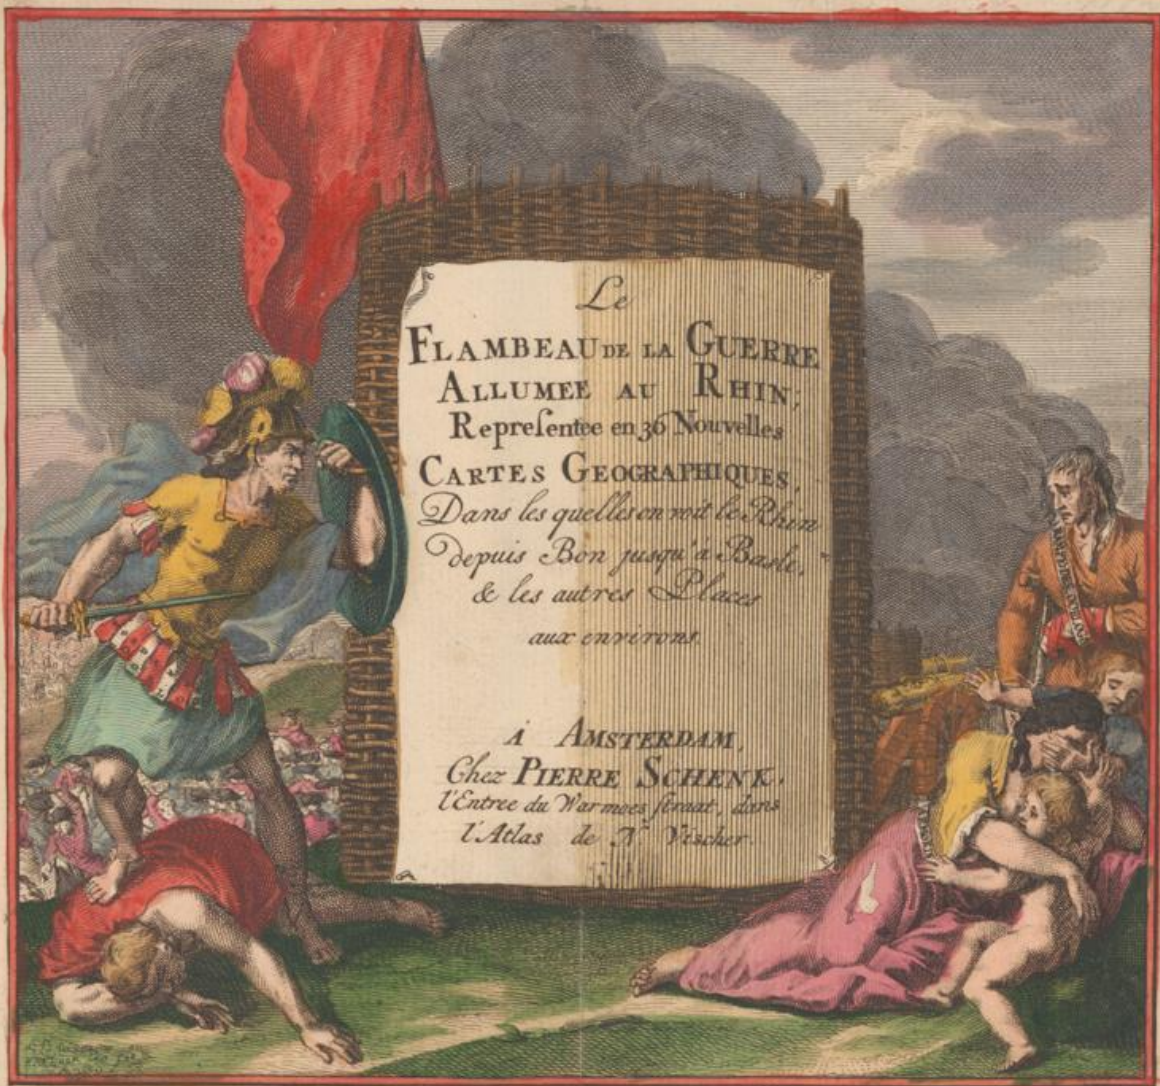 Le
FLAMBEAU DE LA GUERRE
ALLUMEE AU RHIN;
Repreſentee en 36 Nouvelles
CARTES GEOGRAPHIQUES,
Dans les quelles on voit le Rhin
depuis Bon jusqu'à Basle,
& les autres Places
aux environs.
à AMSTERDAM,
Chez PIERRE SCHENK,
l'Entree du Warmoes ſtraat, dans
l'Atlas de N Vischer.